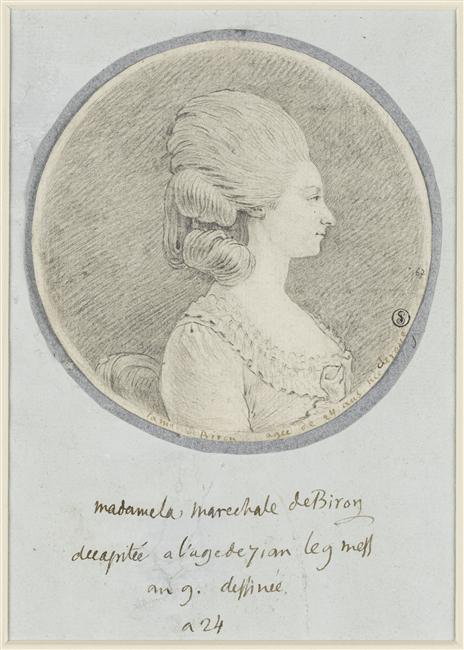 62
Dame de Biron agée de 24 ans
madame la marechale de Biron
decapitée a l'age de 71 an le 9 mess
an 9. dessinée.
a 24